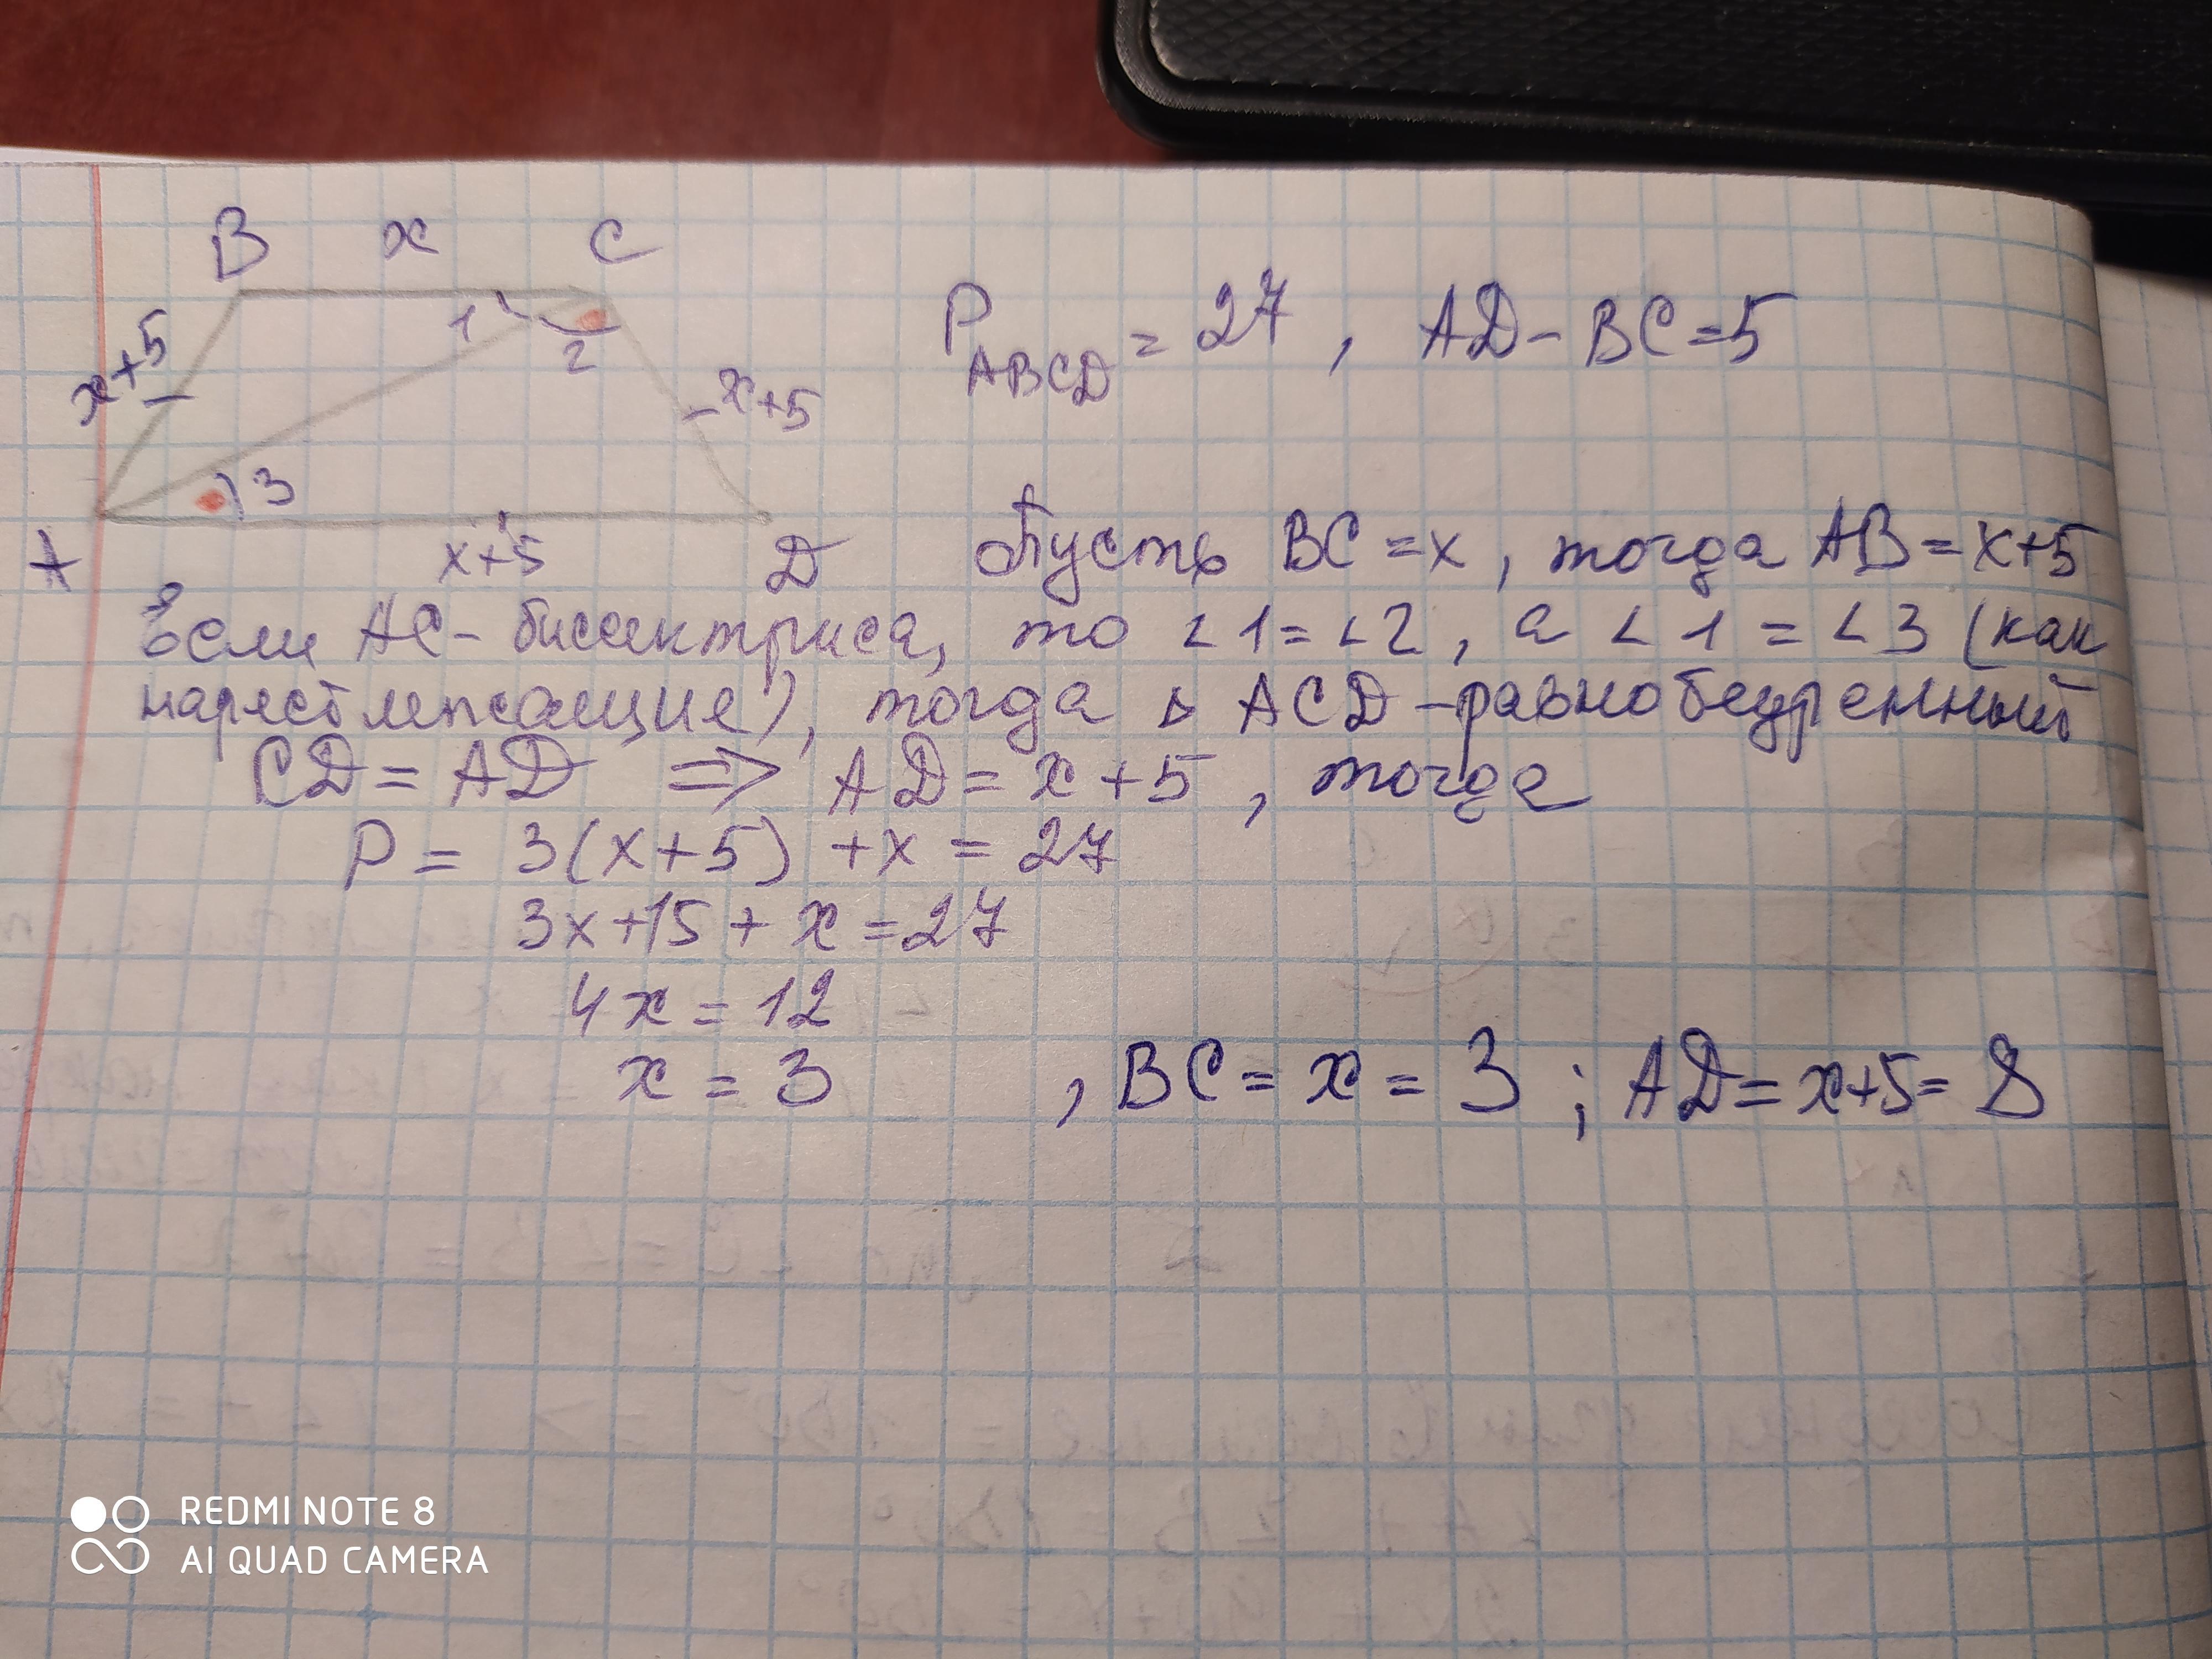 B x C
x+5
1
2
x+5
3
A x+5 D
P ABCD = 27, AD - BC = 5
Пусть BC = x, тогда AB = x+5
Если AC - биссектриса, то ∠1 = ∠2, а ∠1 = ∠3 (как
накрест лежащие), тогда △ ACD - равнобедренный
CD = AD => AD = x + 5, тогда
P = 3(x+5) + x = 27
3x+15 + x = 27
4x = 12
x = 3 , BC = x = 3 ; AD = x+5 = 8
REDMI NOTE 8
AI QUAD CAMERA